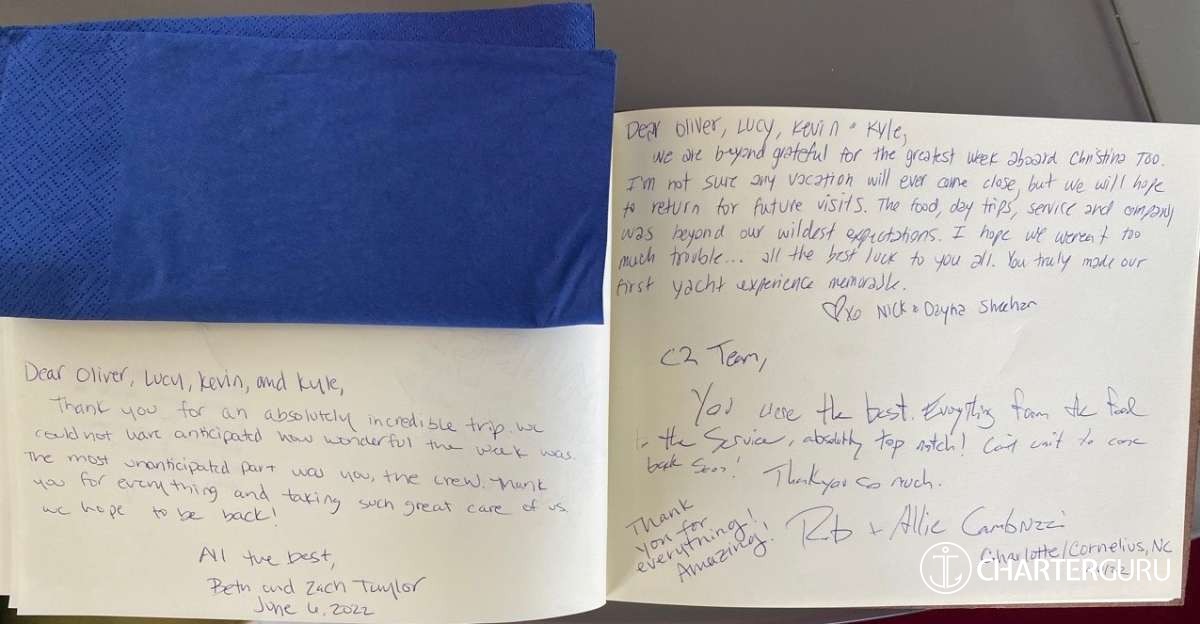 Dear Oliver, Lucy, Kevin, and Kyle,
Thank you for an absolutely incredible trip. We
could not have anticipated how wonderful the week was.
The most unanticipated part was you, the crew. Thank
you for everything and taking such great care of us.
We hope to be back!
All the best,
Beth and Zach Taylor
June 6, 2022
Dear Oliver, Lucy, Kevin & Kyle,
We are beyond grateful for the greatest week aboard Christina Too.
I'm not sure any vacation will ever come close, but we will hope
to return for future visits. The food, day trips, service and company
was beyond our wildest expectations. I hope we weren't too
much trouble... all the best luck to you all. You truly made our
first yacht experience memorable.
♡xo Nick & Dayna Sheehan
C2 Team,
You were the best. Everything from the food
to the service, absolutely top notch! Can't wait to come
back soon!
Thank you so much.
Thank
you for
everything!
Amazing!
Rob + Allie
Charlotte/Cornelius, NC
CHARTERGURU